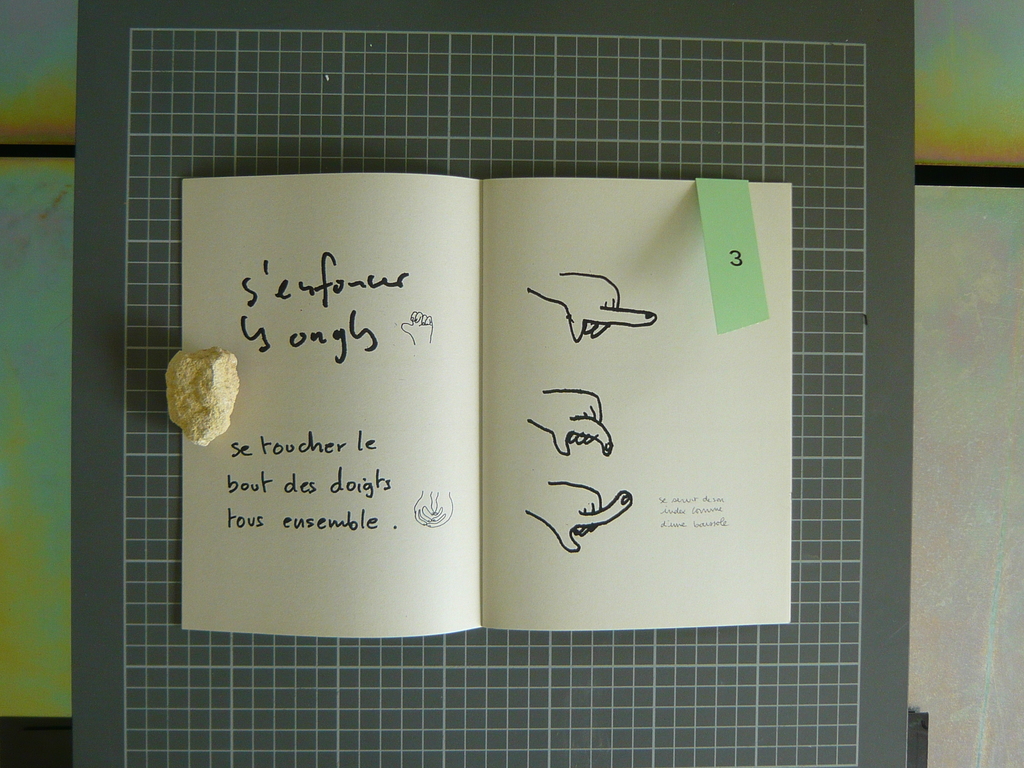 s'enfoncer
les ongles
se toucher le
bout des doigts
tous ensemble.
3
se servir de son
index comme
d'une boussole